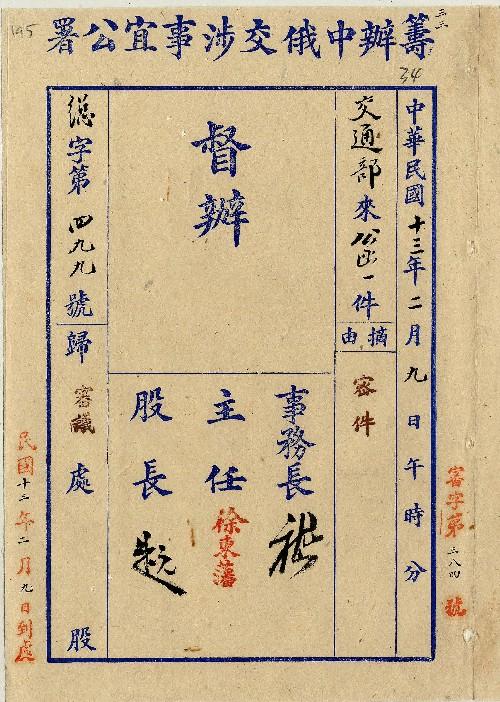 籌辦中俄交涉事宜公署
195
34
中華民國十三年二月九日午時分
交通部來公函一件
摘由
密件
督辦
事務長
主任 徐東藩
股長
總字第四九九號歸審議處 股
審字第三八四號
民國十三年二月九日到處